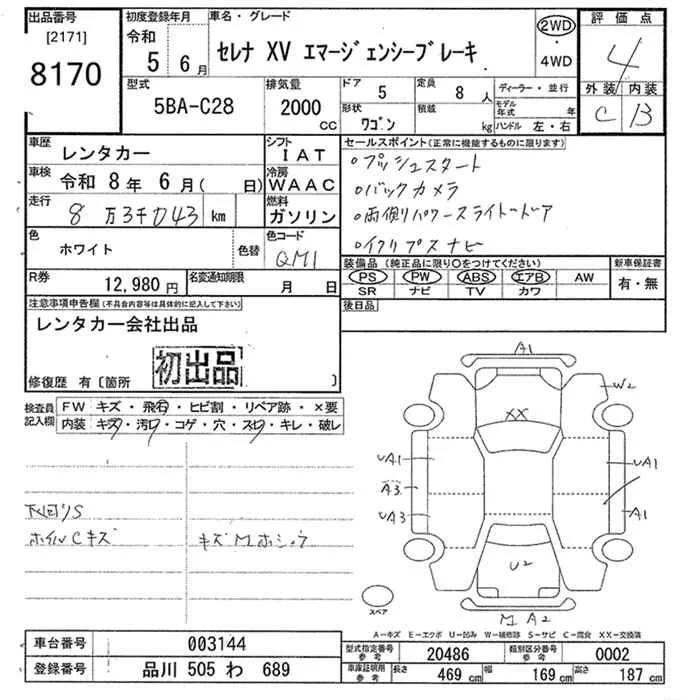 出品番号
[2171]
8170
初度登録年月
令和
5 6月
車名・グレード
セレナ XV エマージェンシーブレーキ
2WD
・
4WD
評価点
4
外装 内装
C B
型式
5BA-C28
排気量
2000
CC
ドア
5
形状
ワゴン
定員
8 人
積載
kg
ディーラー・並行
モデル年式 年
ハンドル 左・右
車歴
レンタカー
シフト
IAT
車検 令和 8年 6月( 日)
冷房
WAAC
走行
8万3千043 km
燃料
ガソリン
色
ホワイト
色替
色コード
QM1
R券
12,980円
名変通知期限
月 日
セールスポイント(正常に機能するものに限ります)
○プッシュスタート
○バックカメラ
○両側パワースライドドア
○イクリプスナビ
装備品(純正品に限り〇をつけてください)
PS・PW・ABS・エアB・AW
SR・ナビ・TV・カワ
新車保証書
有・無
後日品
注意事項申告欄(不具合内容等は具体的に記入して下さい)
レンタカー会社出品
初出品
修復歴 有〔箇所 〕
検査員記入欄
FW キズ・飛石・ヒビ割・リペア跡・×要
内装 キズ・汚れ・コゲ・穴・スレ・キレ・破レ
下回りS
ホイルCキズ
キズMホシュウ
A1
W2
XX
UA1
UA1
A3
UA3
A1
U2
M A2
スペア
A-キズ E-エクボ U-凹み W-補修跡 S-サビ C-腐食 XX-交換済
車台番号 003144
登録番号 品川 505 わ 689
型式指定番号 参考 20486
類別区分番号 参考 0002
車庫証明用 参考 長さ 469 cm 幅 169 cm 高さ 187 cm